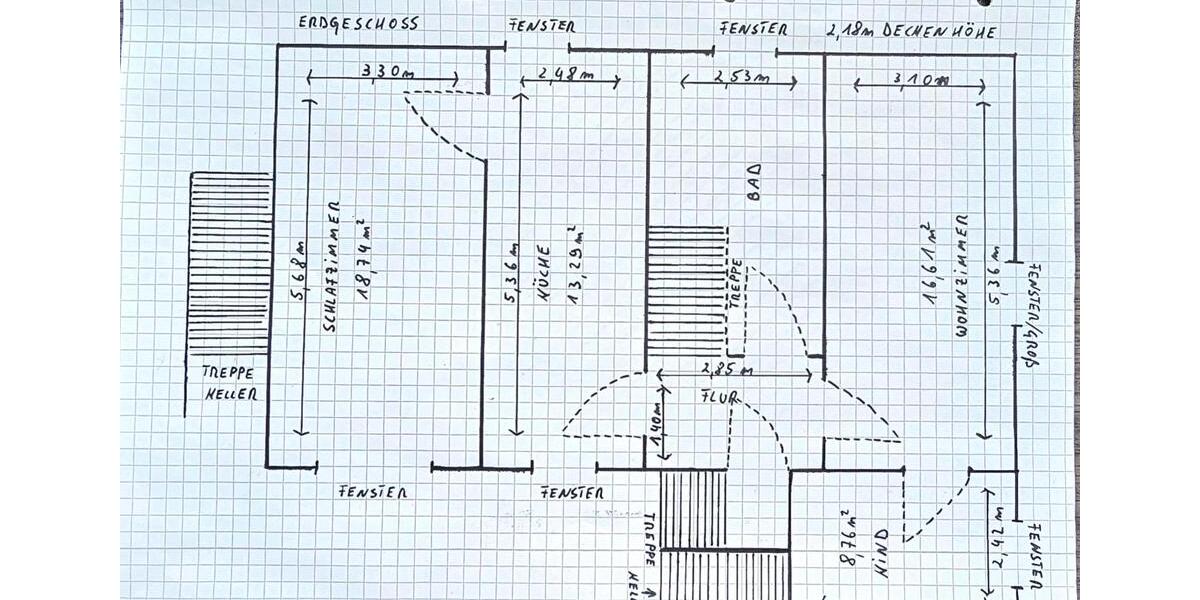 ERDGESCHOSS
FENSTER
FENSTER
2,18m DECKENHÖHE
3,30m
2,48m
2,53m
3,10m
BAD
5,68m
SCHLAFZIMMER
18,74m²
5,36m
KÜCHE
13,29m²
TREPPE
16,61m²
WOHNZIMMER
5,36m
FENSTER/GROß
TREPPE
KELLER
2,85m
FLUR
1,40m
FENSTER
FENSTER
TREPPE
8,76m²
KIND
2,42m
FENSTER